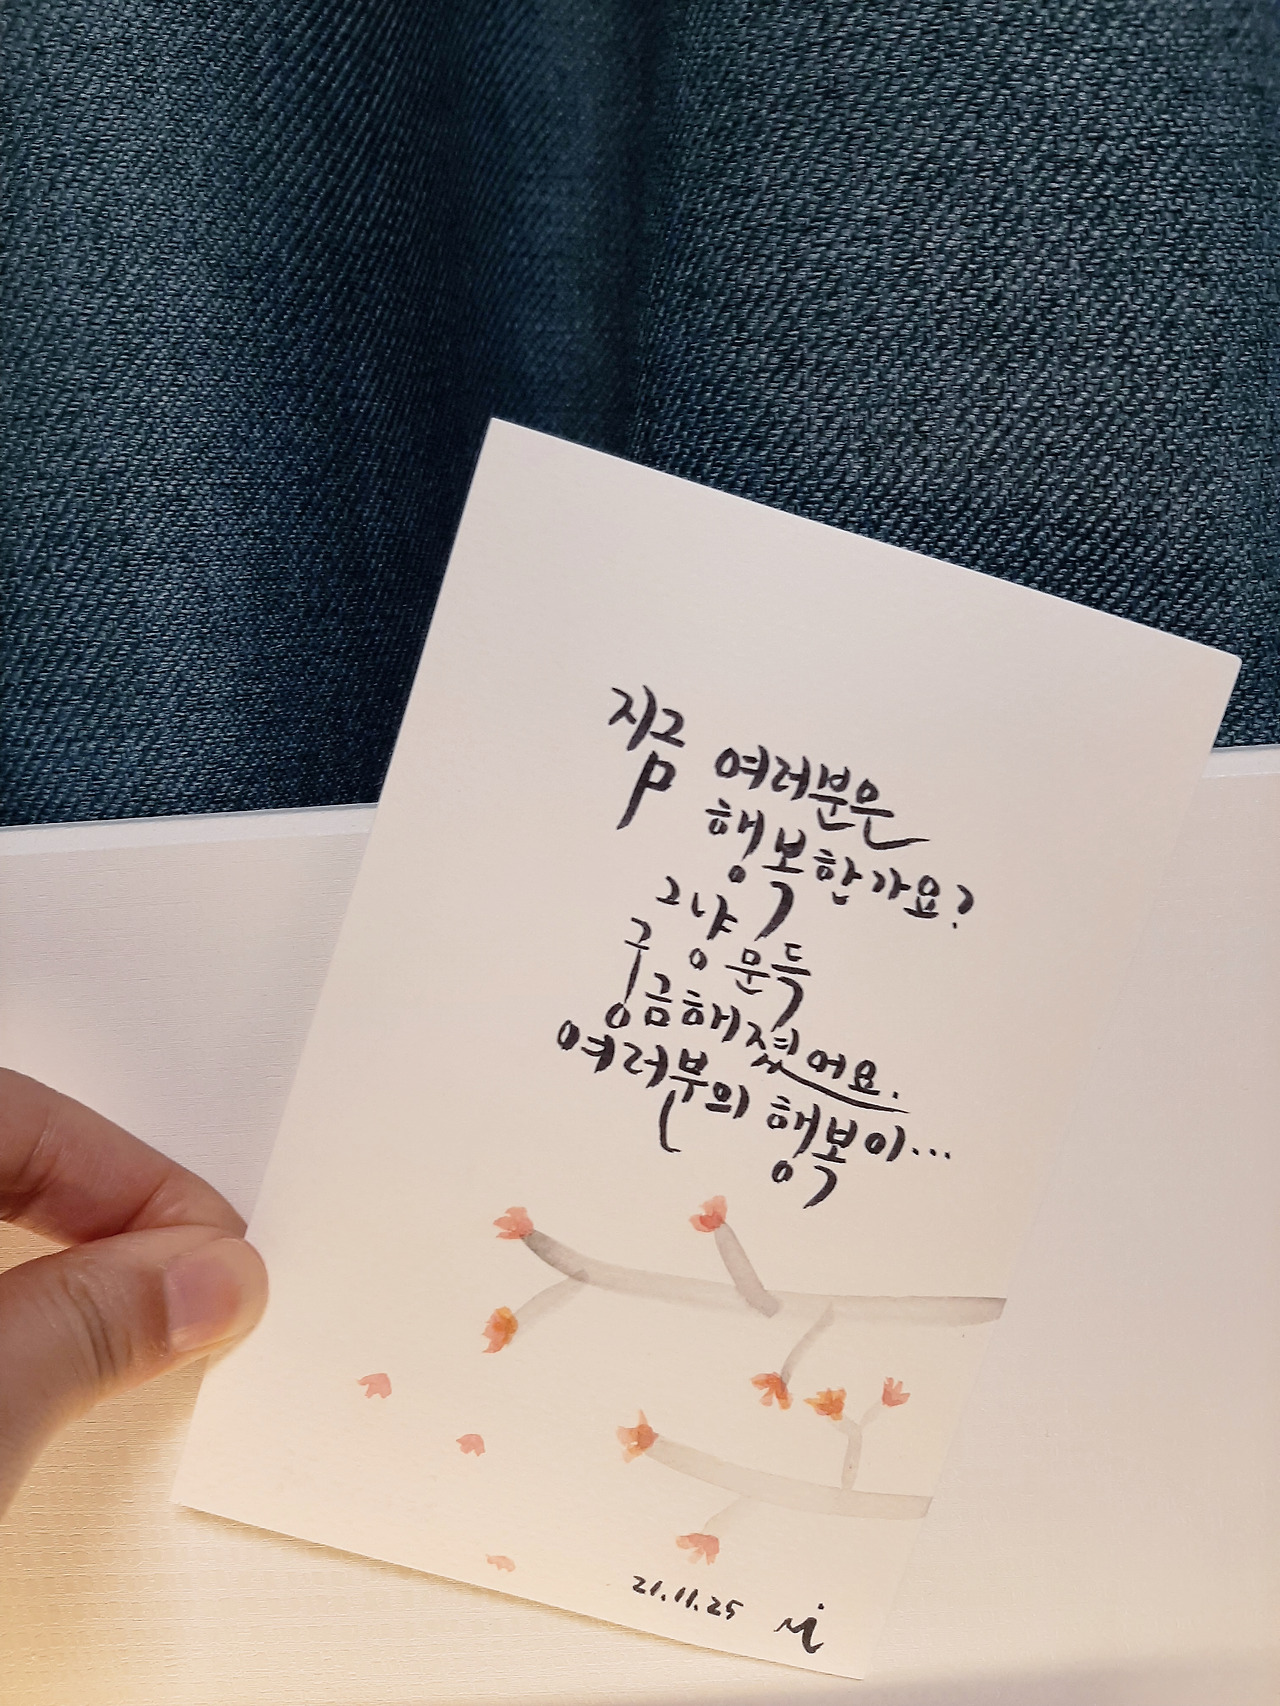 지금 여러분은
행복한가요?
그냥 문득
궁금해졌어요.
여러분의 행복이...
21.11.25